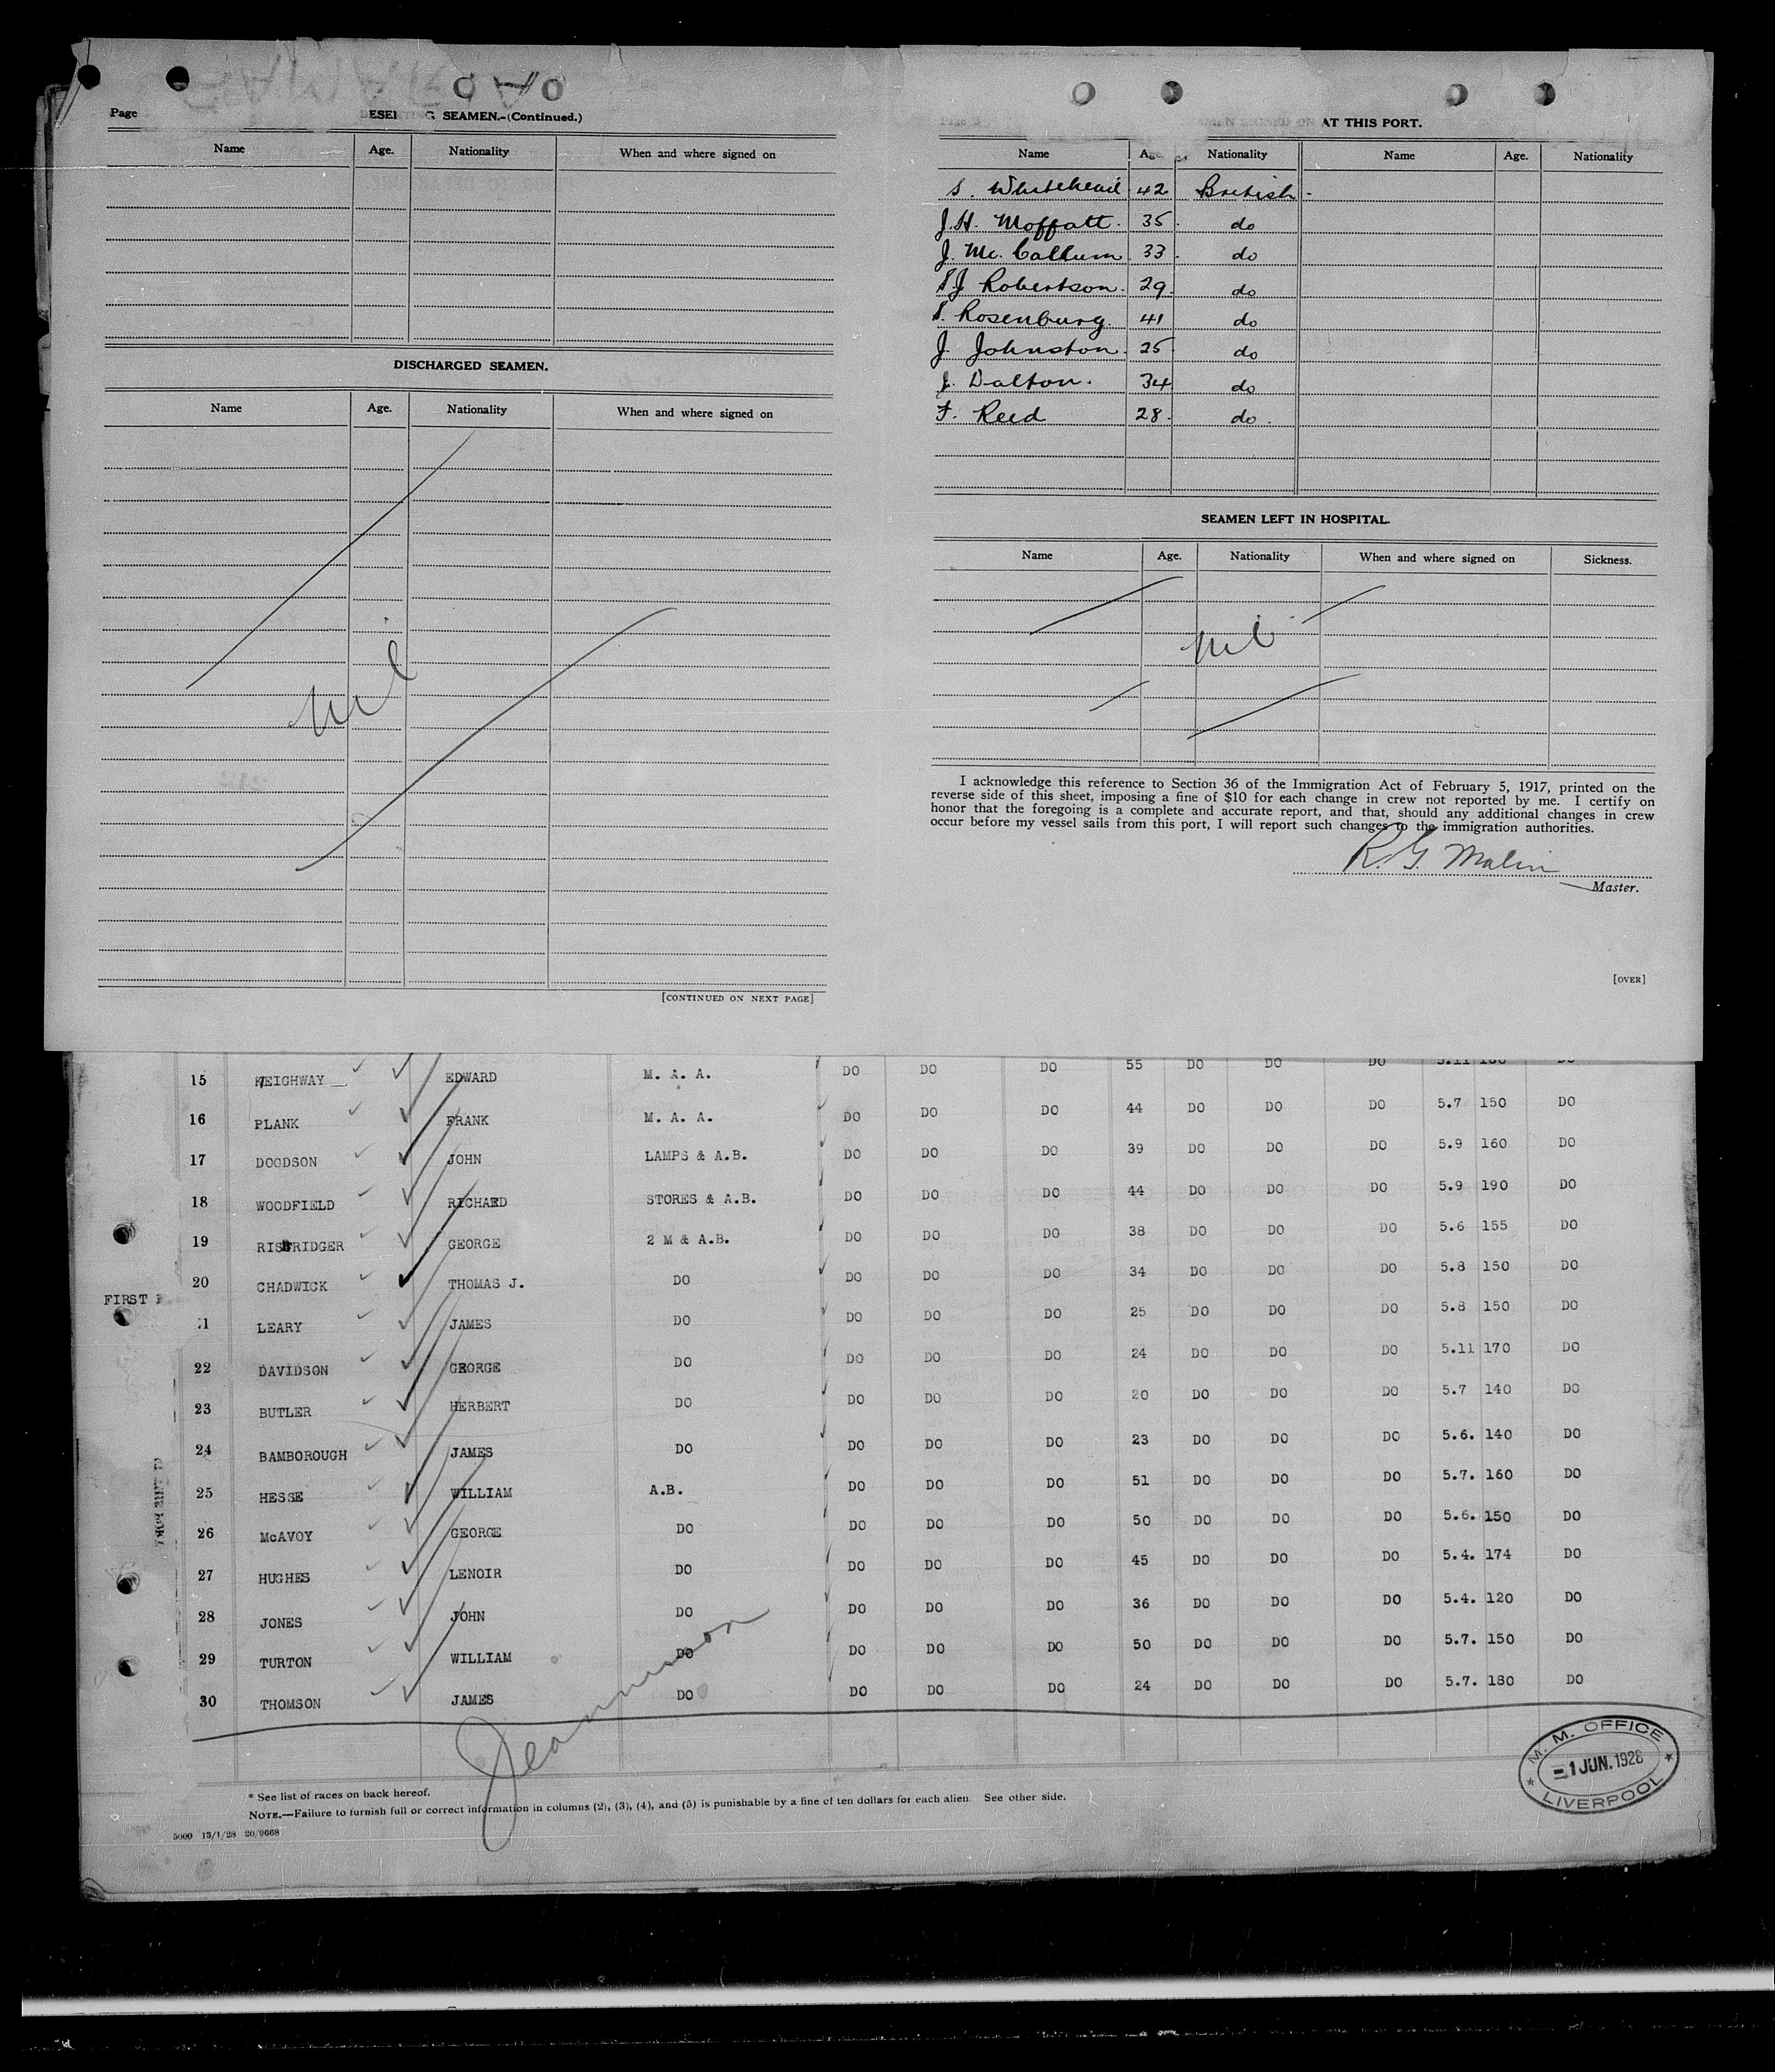 Page
SEAMEN.-(Continued.)
Name Age. Nationality When and where signed on
DISCHARGED SEAMEN.
Name Age. Nationality When and where signed on
nil
[CONTINUED ON NEXT PAGE]
AT THIS PORT.
Name Age. Nationality Name Age. Nationality
S. Whitehead 42 British
J.H. Moffatt. 35 do
J. Mc. Callum 33 do
S.J Robertson. 29 do
S. Rosenburg. 41 do
J. Johnston. 25 do
J. Dalton. 34 do
F. Reed 28 do
SEAMEN LEFT IN HOSPITAL.
Name Age. Nationality When and where signed on Sickness.
nil
I acknowledge this reference to Section 36 of the Immigration Act of February 5, 1917, printed on the
reverse side of this sheet, imposing a fine of $10 for each change in crew not reported by me. I certify on
honor that the foregoing is a complete and accurate report, and that, should any additional changes in crew
occur before my vessel sails from this port, I will report such changes to the immigration authorities.
R. G. Malin
Master.
[OVER]
15 KEIGHWAY EDWARD M. A. A. DO DO DO 55 DO DO DO 5.11
16 PLANK FRANK M. A. A. DO DO DO 44 DO DO DO 5.7 150 DO
17 DOODSON JOHN LAMPS & A.B. DO DO DO 39 DO DO DO 5.9 160 DO
18 WOODFIELD RICHARD STORES & A.B. DO DO DO 44 DO DO DO 5.9 190 DO
19 RISBRIDGER GEORGE 2 M & A.B. DO DO DO 38 DO DO DO 5.6 155 DO
20 CHADWICK THOMAS J. DO DO DO DO 34 DO DO DO 5.8 150 DO
FIRST
1 LEARY JAMES DO DO DO DO 25 DO DO DO 5.8 150 DO
22 DAVIDSON GEORGE DO DO DO DO 24 DO DO DO 5.11 170 DO
23 BUTLER HERBERT DO DO DO DO 20 DO DO DO 5.7 140 DO
24 BAMBOROUGH JAMES DO DO DO DO 23 DO DO DO 5.6. 140 DO
25 HESSE WILLIAM A.B. DO DO DO 51 DO DO DO 5.7. 160 DO
26 McAVOY GEORGE DO DO DO DO 50 DO DO DO 5.6. 150 DO
27 HUGHES LENOIR DO DO DO DO 45 DO DO DO 5.4. 174 DO
28 JONES JOHN DO DO DO DO 36 DO DO DO 5.4. 120 DO
29 TURTON WILLIAM DO DO DO DO 50 DO DO DO 5.7. 150 DO
30 THOMSON JAMES DO DO DO DO 24 DO DO DO 5.7. 180 DO
M. M. OFFICE
1 JUN. 1928
LIVERPOOL
* See list of races on back hereof.
NOTE.—Failure to furnish full or correct information in columns (2), (3), (4), and (5) is punishable by a fine of ten dollars for each alien See other side.
5000 13/1/28 20/9668